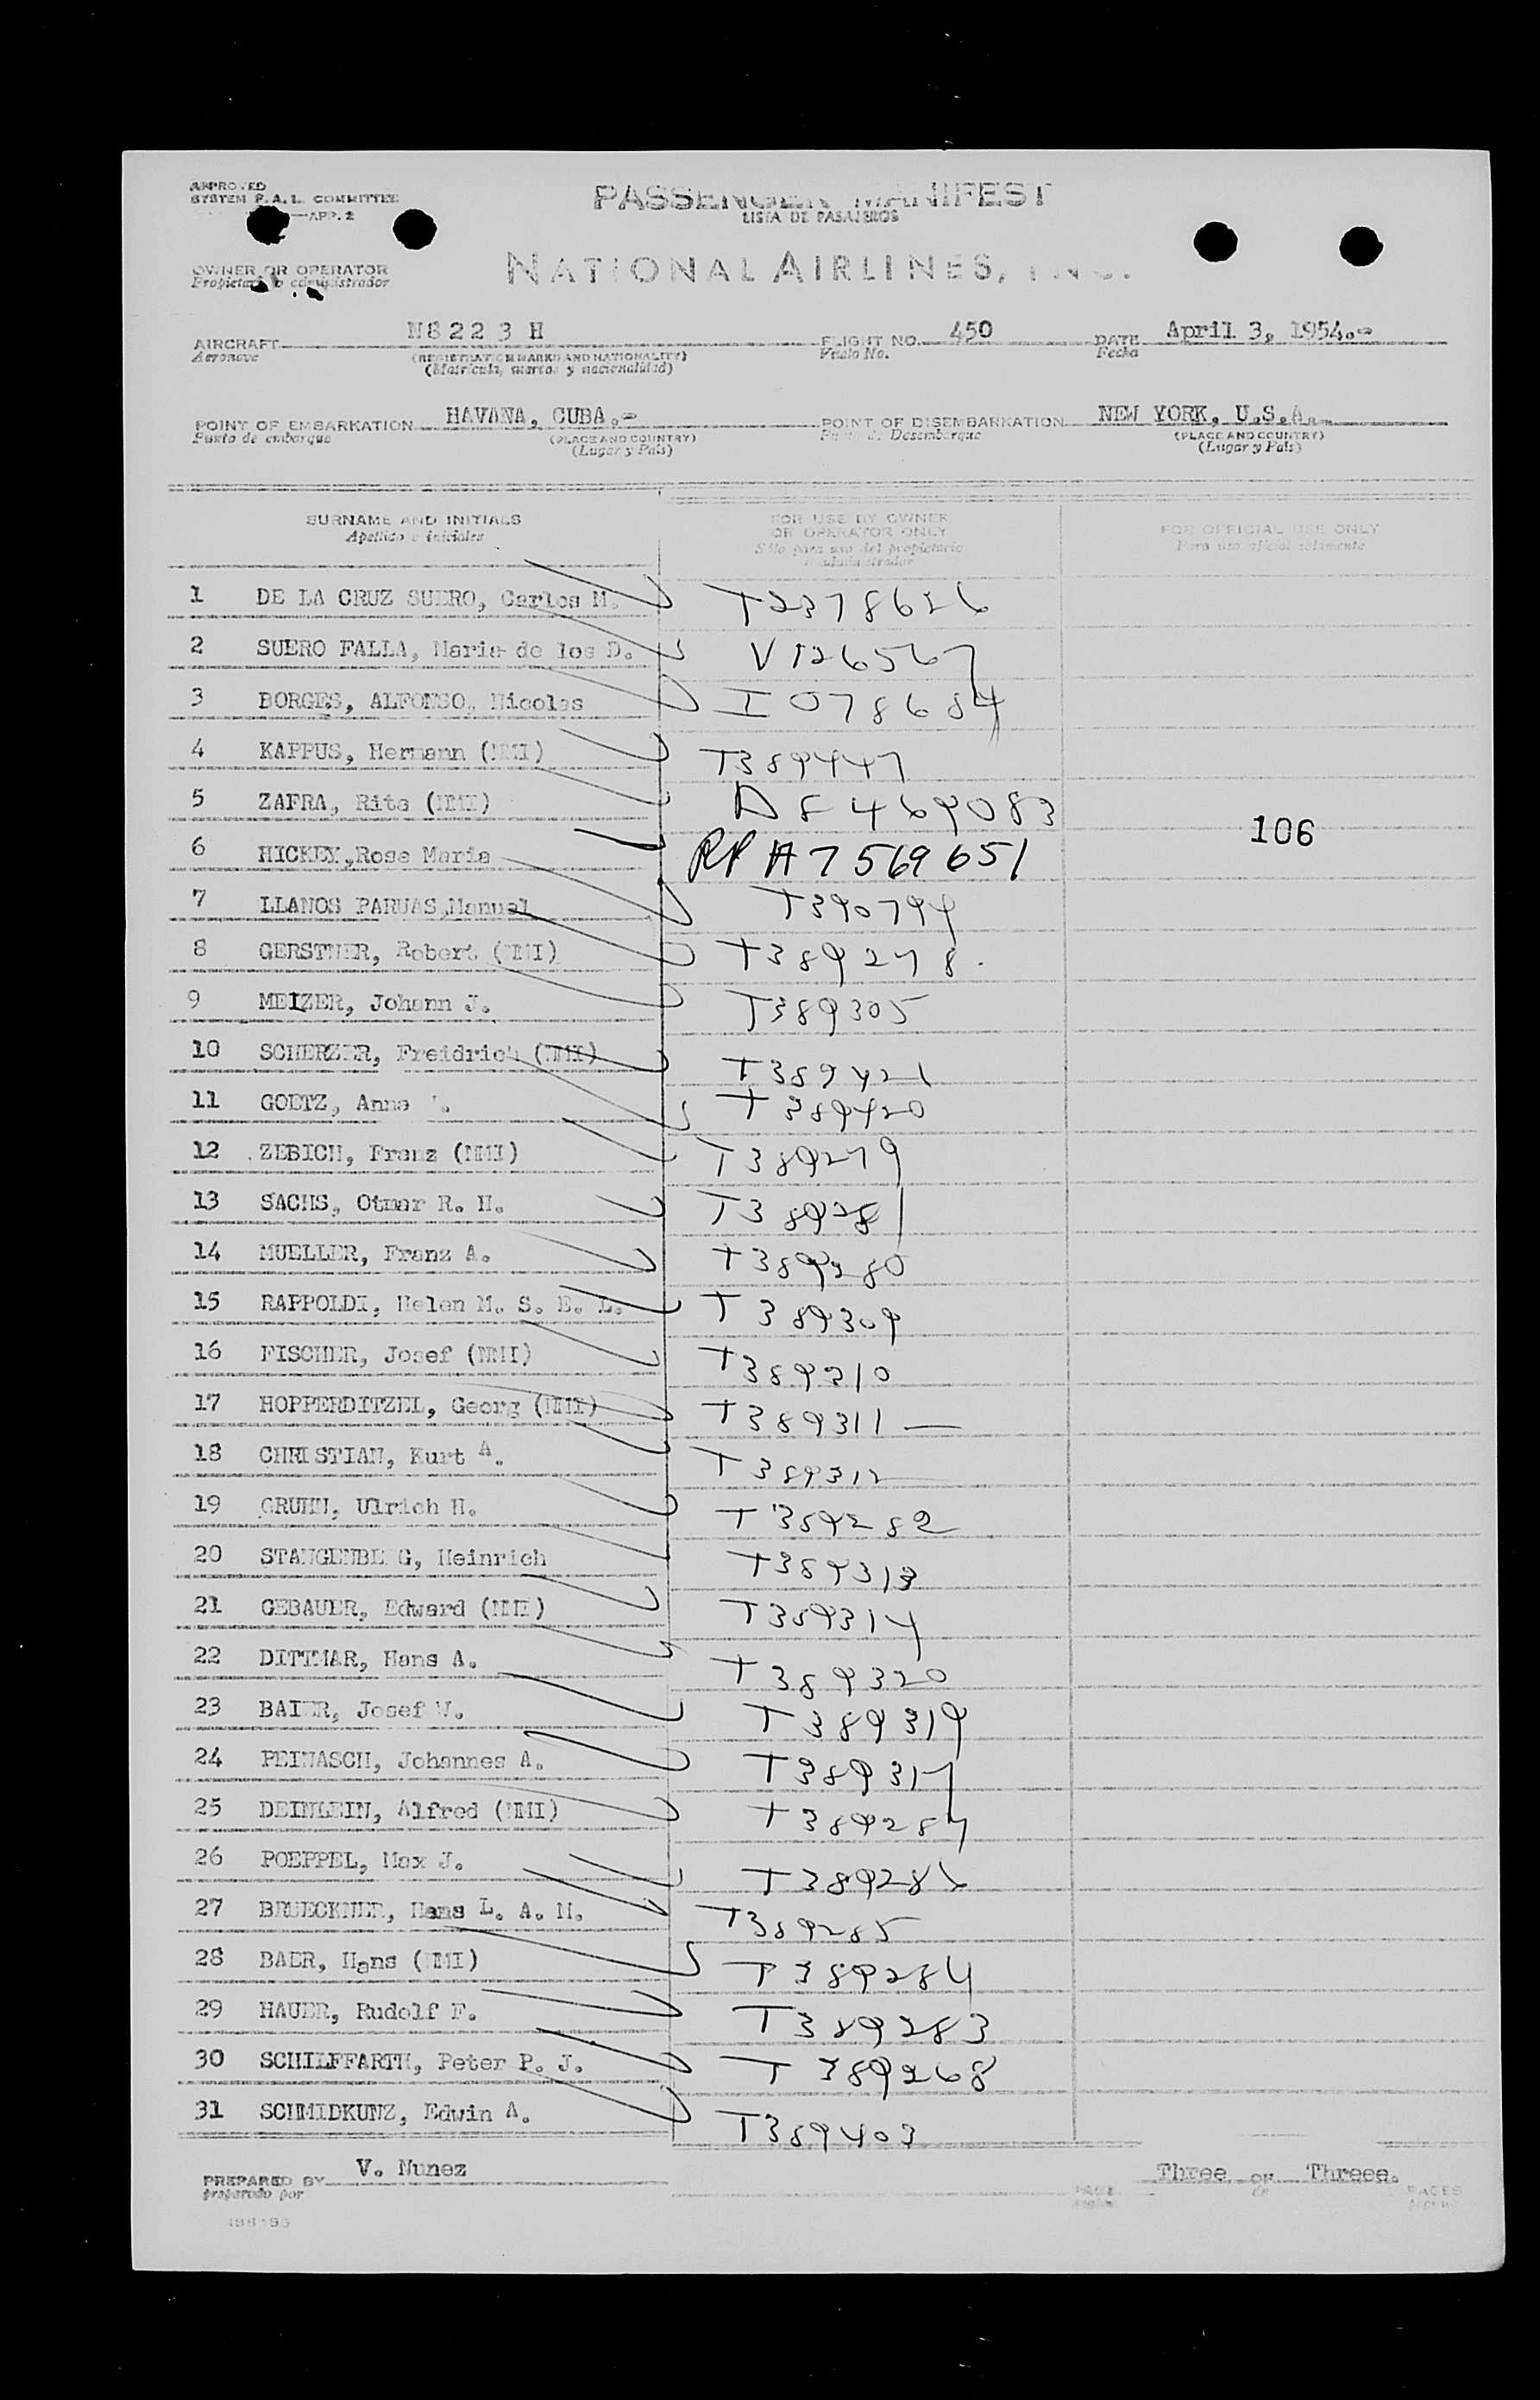 APPROVED
SYSTEM F.A.L. COMMITTEE
—APP. 2
PASSENGER MANIFEST
LISTA DE PASAJEROS
OWNER OR OPERATOR
Propietario o administrador
NATIONAL AIRLINES, INC.
AIRCRAFT N8223H FLIGHT NO. 450 DATE April 3, 1954.-
Aeronave (REGISTRATION MARKS AND NATIONALITY) Vuelo No. Fecha
(Matrícula, marcas y nacionalidad)
POINT OF EMBARKATION HAVANA, CUBA.- POINT OF DISEMBARKATION NEW YORK, U.S.A.
Punto de embarque (PLACE AND COUNTRY) Punto de Desembarque (PLACE AND COUNTRY)
(Lugar y País) (Lugar y País)
SURNAME AND INITIALS FOR USE BY OWNER OR OPERATOR ONLY FOR OFFICIAL USE ONLY
Apellido e iniciales Sólo para uso del propietario o administrador Para uso oficial solamente
1 DE LA CRUZ SUERO, Carlos M. T2378626
2 SUERO FALLA, Maria de los D. V126567
3 BORGES, ALFONSO, Nicolas I 078684
4 KAPPUS, Hermann (NMI) T389447
5 ZAFRA, Rita (NMI) 469083
106
6 HICKEY, Rose Maria RP A7569651
7 LLANOS PARUAS, Manuel T390794
8 GERSTNER, Robert (NMI) T389278.
9 MEIZER, Johann J. T389305
10 SCHERZER, Freidrich (NMI) T389421
11 GOETZ, Anna T389420
12 ZEBICH, Franz (NMI) T389279
13 SACHS, Otmar R. H. T389281
14 MUELLER, Franz A. T389280
15 RAPPOLDI, Helen M. S. E. L. T389309
16 FISCHER, Josef (NMI) T389310
17 HOPPERDITZEL, Georg (NMI) T389311 —
18 CHRISTIAN, Kurt A. T389312
19 GRUHN, Ulrich H. T389282
20 STANGENBERG, Heinrich T389313
21 GEBAUER, Edward (NMI) T389314
22 DITTMAR, Hans A. T389320
23 BAIER, Josef W. T389319
24 PEINASCH, Johannes A. T389317
25 DEINLEIN, Alfred (NMI) T389287
26 POEPPEL, Max J. T389286
27 BRUECKNER, Hans L. A. M. T389285
28 BAER, Hans (NMI) T389284
29 HAUER, Rudolf F. T389283
30 SCHILFFARTH, Peter P. J. T389268
31 SCHMIDKUNZ, Edwin A. T389403
PREPARED BY V. Nunez PAGE Three OF Threee. PAGES
preparado por De